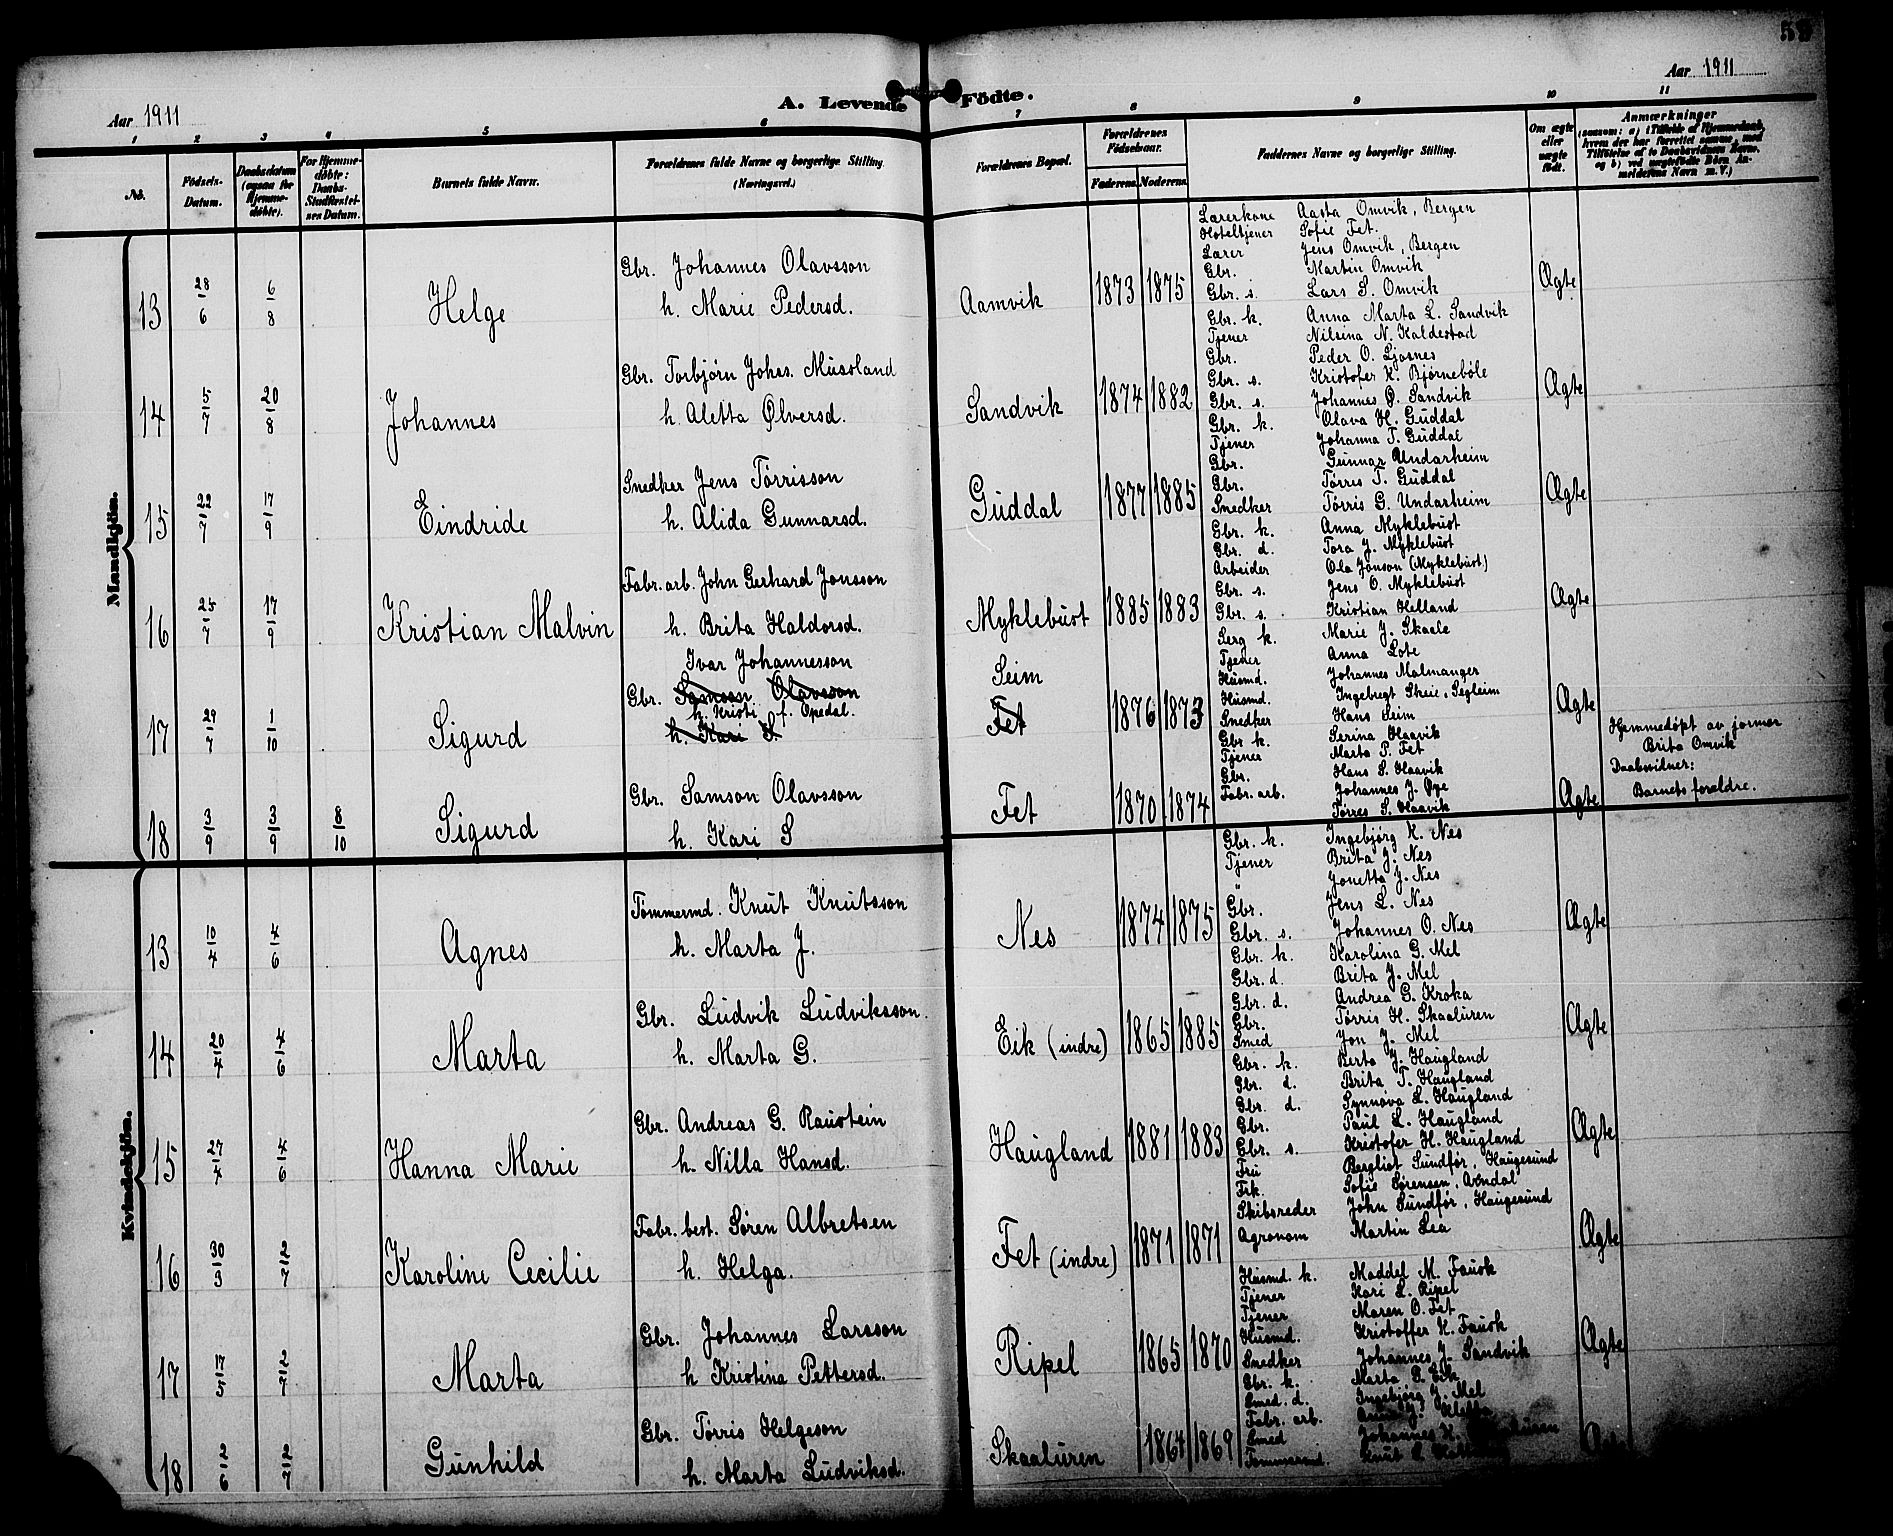 Aar 1911
A. Levende Födte.
Aar 1911
1 2 3 4 5 6 7 8 9 10 11
No.
Födsels-Datum.
Daabsdatum (ogsaa for Hjemmedöbte).
For Hjemmedöbte: Daabs-Stadfæstelses Datum.
Barnets fulde Navn.
Forældrenes fulde Navne og borgerlige Stilling. (Næringsvei.)
Forældrenes Bopæl.
Forældrenes Födselsaar.
Faderens. Moderens.
Faddernes Navne og borgerlige Stilling.
Om ægte eller uægte födt.
Anmærkninger
(saasom: a) i Tilfælde af Hjemmedaab, hvem der har forrettet samme, med Tilföielse af to Daabsvidners Navne, og b) ved uægtefödte Börn Anmelderens Navn m. V.)
Mandkjön.
13 28/6 6/8 Helge
Gbr. Johannes Olavsson
h. Marie Pedersd.
Aamvik 1873 1875
Lærerkone Aasta Omvik, Bergen
Hoteltjener Sofie Fet.
Lærer Jens Omvik, Bergen
Gbr. Martin Omvik
Gbr. s. Lars S. Omvik
Ægte
14 5/7 20/8 Johannes
Gbr. Torbjørn Johs. Musoland
h. Aletta Ølversd.
Sandvik 1874 1882
Gbr. k. Anna Marta L. Sandvik
Tjener Nilsina N. Kaldestad
Gbr. Peder O. Ljosnes
Gbr. s. Kristofer K. Bjørnebøle
Gbr. s. Johannes Ø. Sandvik
Ægte
15 22/7 17/9 Eindride
Snedker Jens Tørrisson
h. Alida Gunnarsd.
Guddal 1877 1885
Gbr. k. Olava H. Guddal
Tjener Johanna T. Guddal
Gbr. Gunnar Undarheim
Gbr. Tørres T. Guddal
Snedker Tørris G. Undarheim
Ægte
16 25/7 17/9 Kristian Malvin
Fabr. arb. John Gerhard Jonsson
h. Brita Haldorsd.
Myklebust 1885 1883
Gbr. k. Anna Myklebust
Gbr. d. Tora J. Myklebust
Arbeider Ola Jonson (Myklebust)
Gbr. s. Jens O. Myklebust
Gbr. s. Kristian Helland
Ægte
17 29/7 1/10 Sigurd
Ivar Johannesson
Gbr. Samson Olavsson
h. Kristi f. Opedal.
h. Kari S.
Seim
Fet 1876 1873
Serg k. Marie J. Skaale
Tjener Anna Lote
Husmd. Johannes Malmanger
Husmd. Ingebregt Skeie, Segleim
Snedker Hans Seim
Ægte
18 3/9 3/9 8/10 Sigurd
Gbr. Samson Olavsson
h. Kari S
Fet 1870 1874
Gbr k. Serina Haavik
Tjener Marta P. Fet
Gbr. Hans S. Haavik
Fabr. arb. Johannes J. Øye
Tørres S. Haavik
Ægte
Hjemmedøpt av jormor
Brita Omvik
Daabsvidner:
Barnets foreldre.
Kvindekjön.
13 10/4 4/6 Agnes
Tømmermd. Knut Knutsson
h. Marta J.
Nes 1874 1875
Gbr. k. Ingebjørg K. Nes
Tjener Brita J. Nes
" Jonetta J. Nes
Gbr. Jens L. Nes
Gbr. s. Johannes O. Nes
Ægte
14 20/4 4/6 Marta
Gbr. Ludvik Ludviksson.
h. Marta G.
Eik (indre) 1865 1885
Gbr. k. Karolina G. Mel
Gbr. d. Brita J. Mel
Gbr. d. Andrea G. Kroka
Gbr. Tørris H. Skaaluren
Smed Jon J. Mel
Ægte
15 27/4 4/6 Hanna Marie
Gbr. Andreas G. Raustein
h. Nilla Hansd.
Haugland 1881 1883
Gbr. k. Berta J. Haugland
Gbr. d. Brita T. Haugland
Gbr. d. Synnøva L. Haugland
Gbr. Paul L. Haugland
Gbr. s. Kristofer H. Haugland
Ægte
16 30/3 2/7 Karoline Cecilie
Fabr. best. Søren Albretsen
h. Helga.
Fet (indre) 1871 1871
Fru Bergliot Sundfør, Haugesund
Frk. Sofie Sørensen, Arndal
Skibsreder John Sundfør, Haugesund
Agronom Martin Lea
Ægte
17 17/5 2/7 Marta
Gbr. Johannes Larsson
h. Kristina Pettersd.
Ripel 1865 1870
Husmd. k. Maddel M. Fausk
Tjener Kari L. Ripel
Tjener Maren O. Fet
Husmd. Kristoffer K. Fausk
Snedker Johannes J. Sandvik
Ægte
18 2/6 2/7 Gunhild
Gbr. Tørris Helgeson
h. Marta Ludviksd.
Skaaluren 1864 1869
Gbr. k. Marta P. Eik
Smed. d. Ingebjørg J. Mel
Fabr. arb.
Smed Johannes H.
Tømmermd. Knut